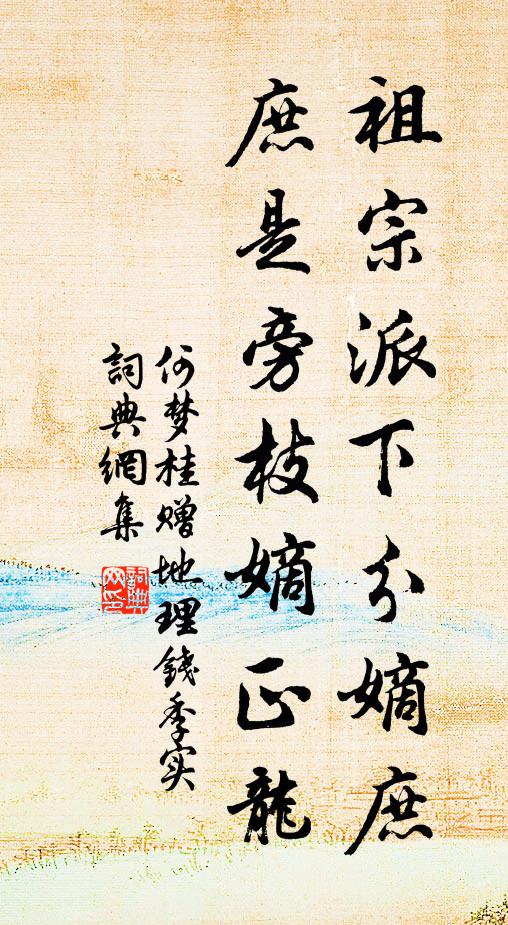 祖宗派下分嫡庶
庶是旁枝嫡正龍
何梦桂赠地理錢季实
詞典網集
詞典
网印